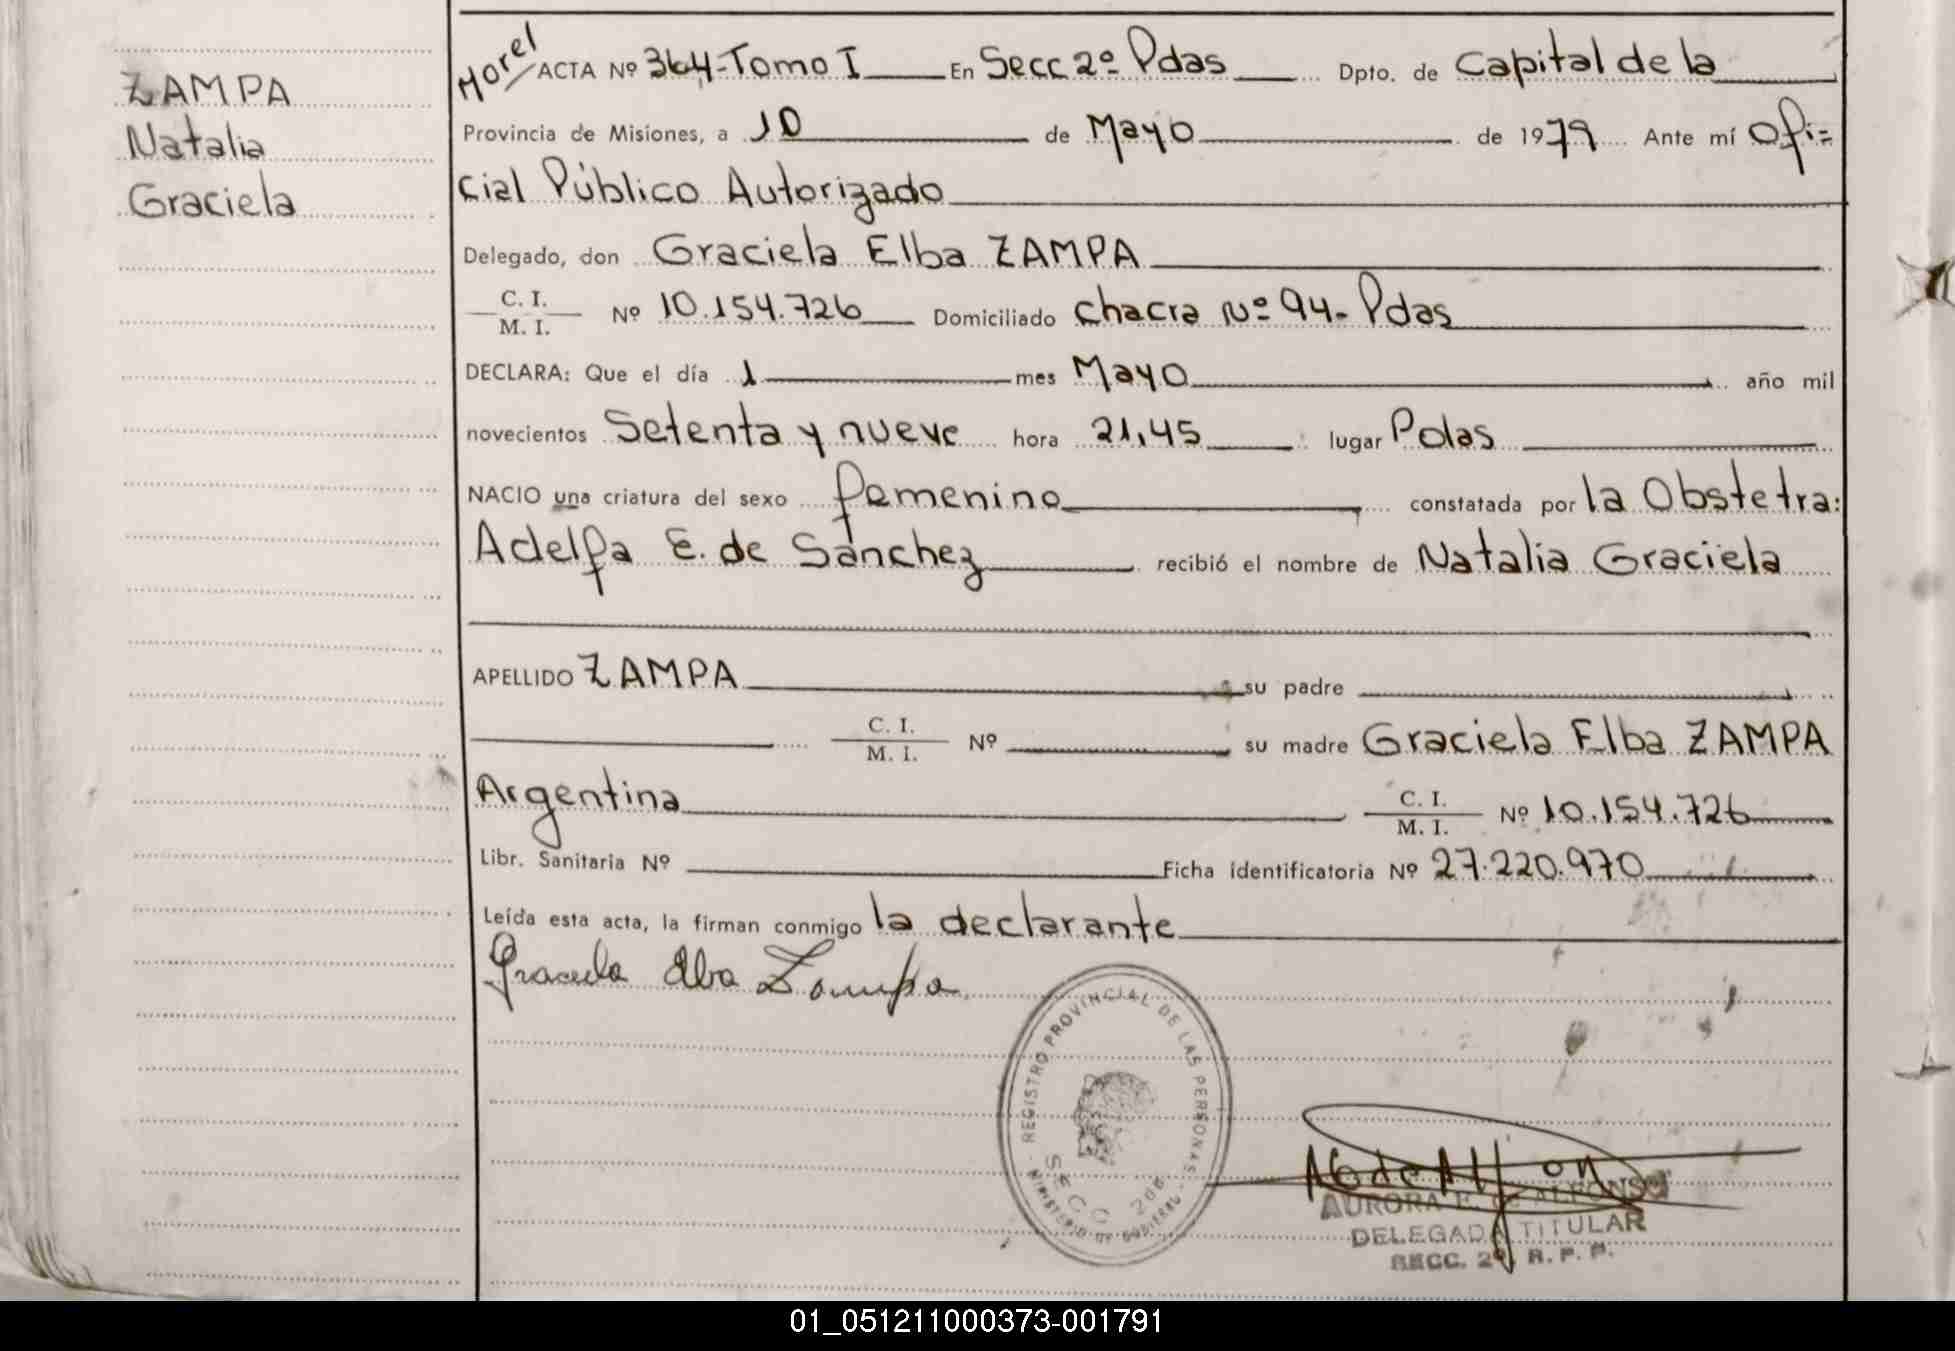 ZAMPA
Natalia
Graciela
Morel ACTA Nº 364-Tomo I En Secc 2º Pdas Dpto. de Capital de la
Provincia de Misiones, a 10 de Mayo de 1979 Ante mí Ofi=
cial Público Autorizado
Delegado, don Graciela Elba ZAMPA
C. I.
M. I. Nº 10.154.726 Domiciliado Chacra Nº 94- Pdas
DECLARA: Que el día 1 mes Mayo año mil
novecientos Setenta y nueve hora 21,45 lugar Pdas
NACIO una criatura del sexo femenino constatada por la Obstetra:
Adelfa E. de Sánchez recibió el nombre de Natalia Graciela
APELLIDO ZAMPA su padre
C. I.
M. I. Nº su madre Graciela Elba ZAMPA
Argentina C. I.
M. I. Nº 10.154.726
Libr. Sanitaria Nº Ficha identificatoria Nº 27.220.970
Leída esta acta, la firman conmigo la declarante
Graciela Elba Zampa
REGISTRO PROVINCIAL DE LAS PERSONAS
MINISTERIO DE GOBIERNO
SECC 2da
AURORA E. de ALFONSO
DELEGADA TITULAR
SECC. 2ª R. P. P.
01_051211000373-001791